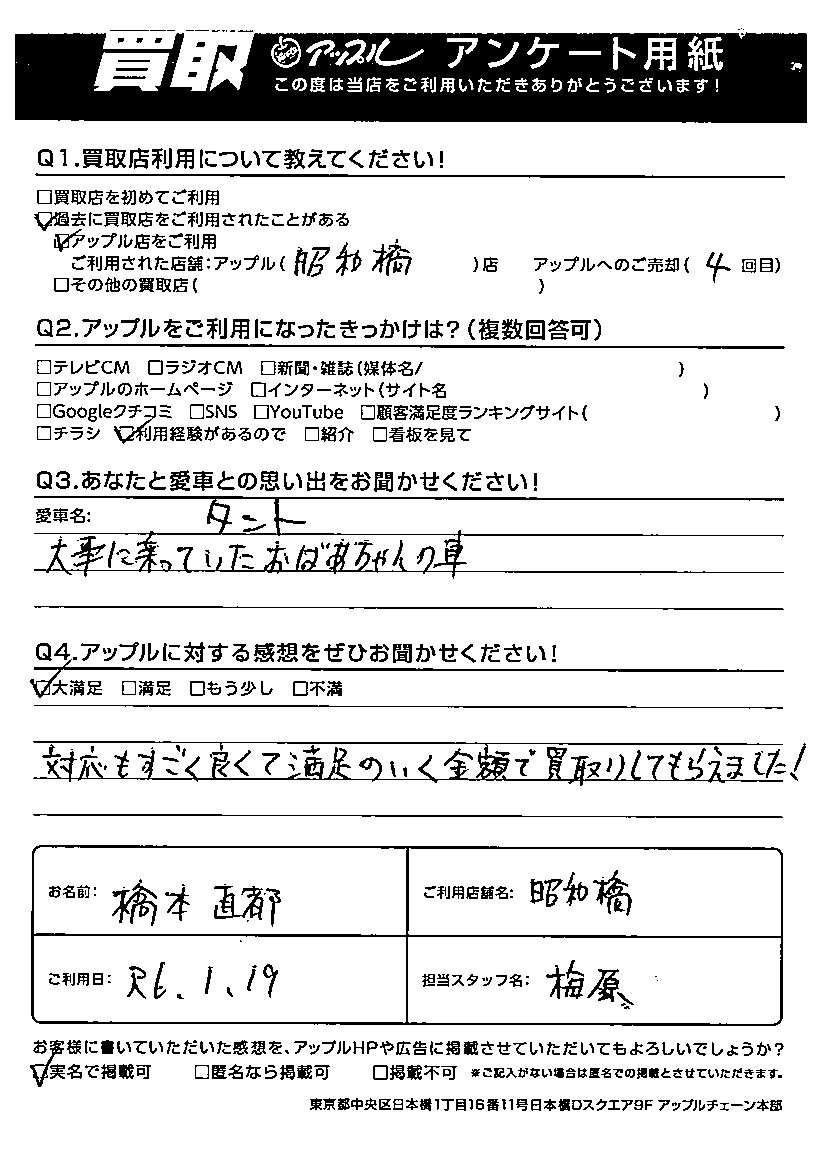 買取 アップル アンケート用紙
この度は当店をご利用いただきありがとうございます!
Q1.買取店利用について教えてください!
□買取店を初めてご利用
☑過去に買取店をご利用されたことがある
☑アップル店をご利用
ご利用された店舗:アップル( 昭和橋 )店 アップルへのご売却( 4 回目)
□その他の買取店( )
Q2.アップルをご利用になったきっかけは?(複数回答可)
□テレビCM □ラジオCM □新聞・雑誌(媒体名/ )
□アップルのホームページ □インターネット(サイト名 )
□Googleクチコミ □SNS □YouTube □顧客満足度ランキングサイト( )
□チラシ ☑利用経験があるので □紹介 □看板を見て
Q3.あなたと愛車との思い出をお聞かせください!
愛車名: タント
大事に乗っていたおばあちゃんの車
Q4.アップルに対する感想をぜひお聞かせください!
☑大満足 □満足 □もう少し □不満
対応もすごく良くて満足のいく金額で買取りしてもらえました!
お名前: 橋本 直都 ご利用店舗名: 昭和橋
ご利用日: R6.1.19 担当スタッフ名: 梅原
お客様に書いていただいた感想を、アップルHPや広告に掲載させていただいてもよろしいでしょうか?
☑実名で掲載可 □匿名なら掲載可 □掲載不可 ※ご記入がない場合は匿名での掲載とさせていただきます。
東京都中央区日本橋1丁目16番11号日本橋Dスクエア9F アップルチェーン本部